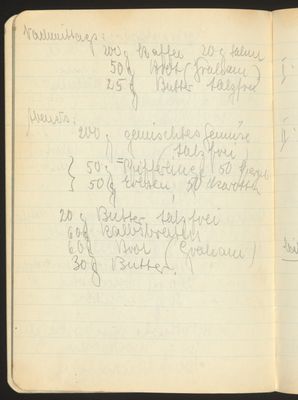 Nachmittags:
200 g Kaffee 20 g Sahne
50 g Brot (Graham)
25 g Butter salzfrei
Abends:
200 g gemischtes Gemüse
(salzfrei
50 g Pfifferlinge, 50
50 g Erbsen, 50 Karotten
20 g Butter salzfrei
60 g Kalbsbraten
60 g Brot (Graham)
30 g Butter